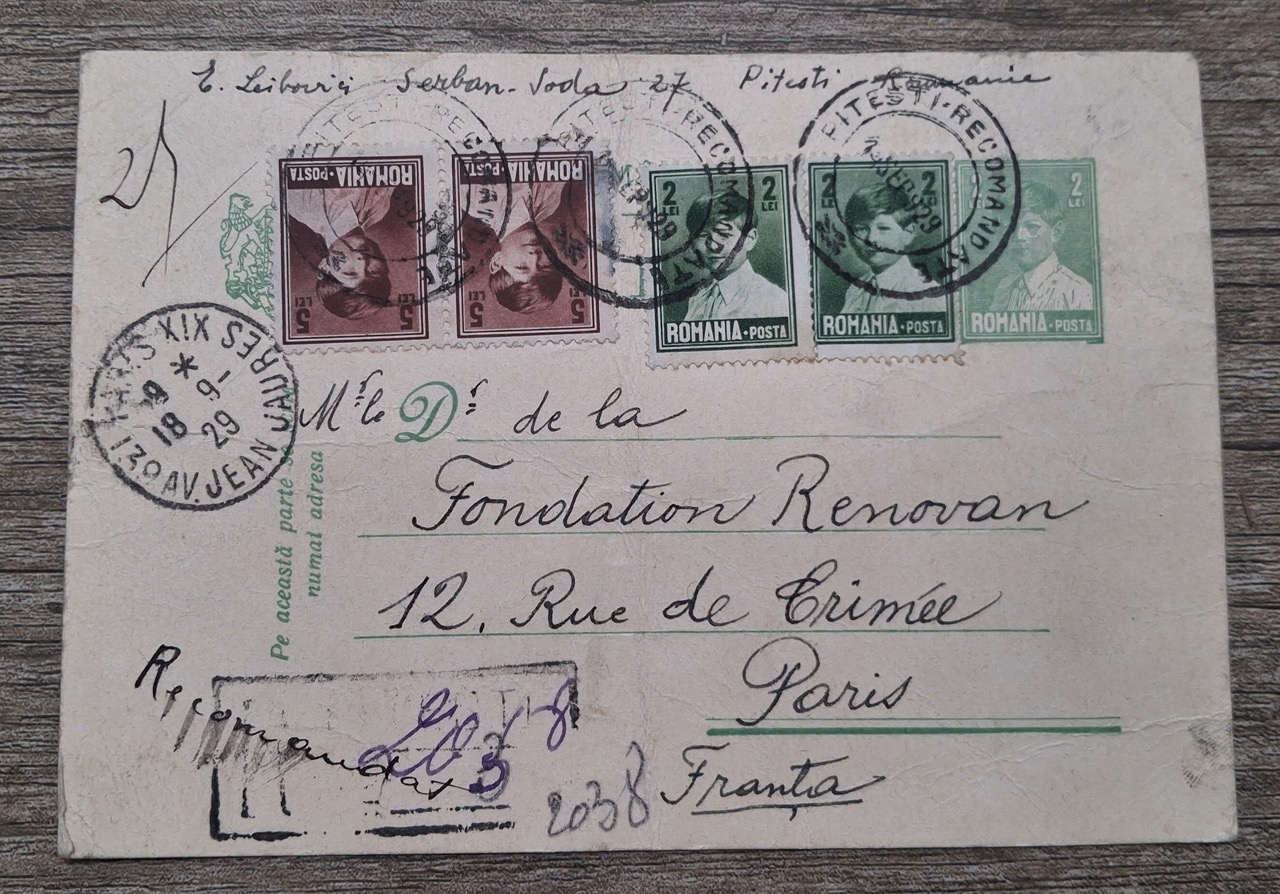 E. Leibovici Serban-Voda 27 Pitesti Romanie
PITESTI-RECOMANDATE
PITESTI-RECOMANDATE
PITESTI-RECOMANDATE
SEP. 929
ROMANIA·POSTA
5 LEI 5
ROMANIA·POSTA
5 LEI 5
2 LEI 2 LEI
ROMANIA·POSTA
2 LEI 2
ROMANIA·POSTA
2 LEI
ROMANIA·POSTA
PARIS XIX
18 9- 29
130 AV. JEAN JAURES
Mr. le Dr. de la
Fondation Renovan
12, Rue de Crimée
Paris
Franța
Pe această parte
numai adresa
Recomandat
2038